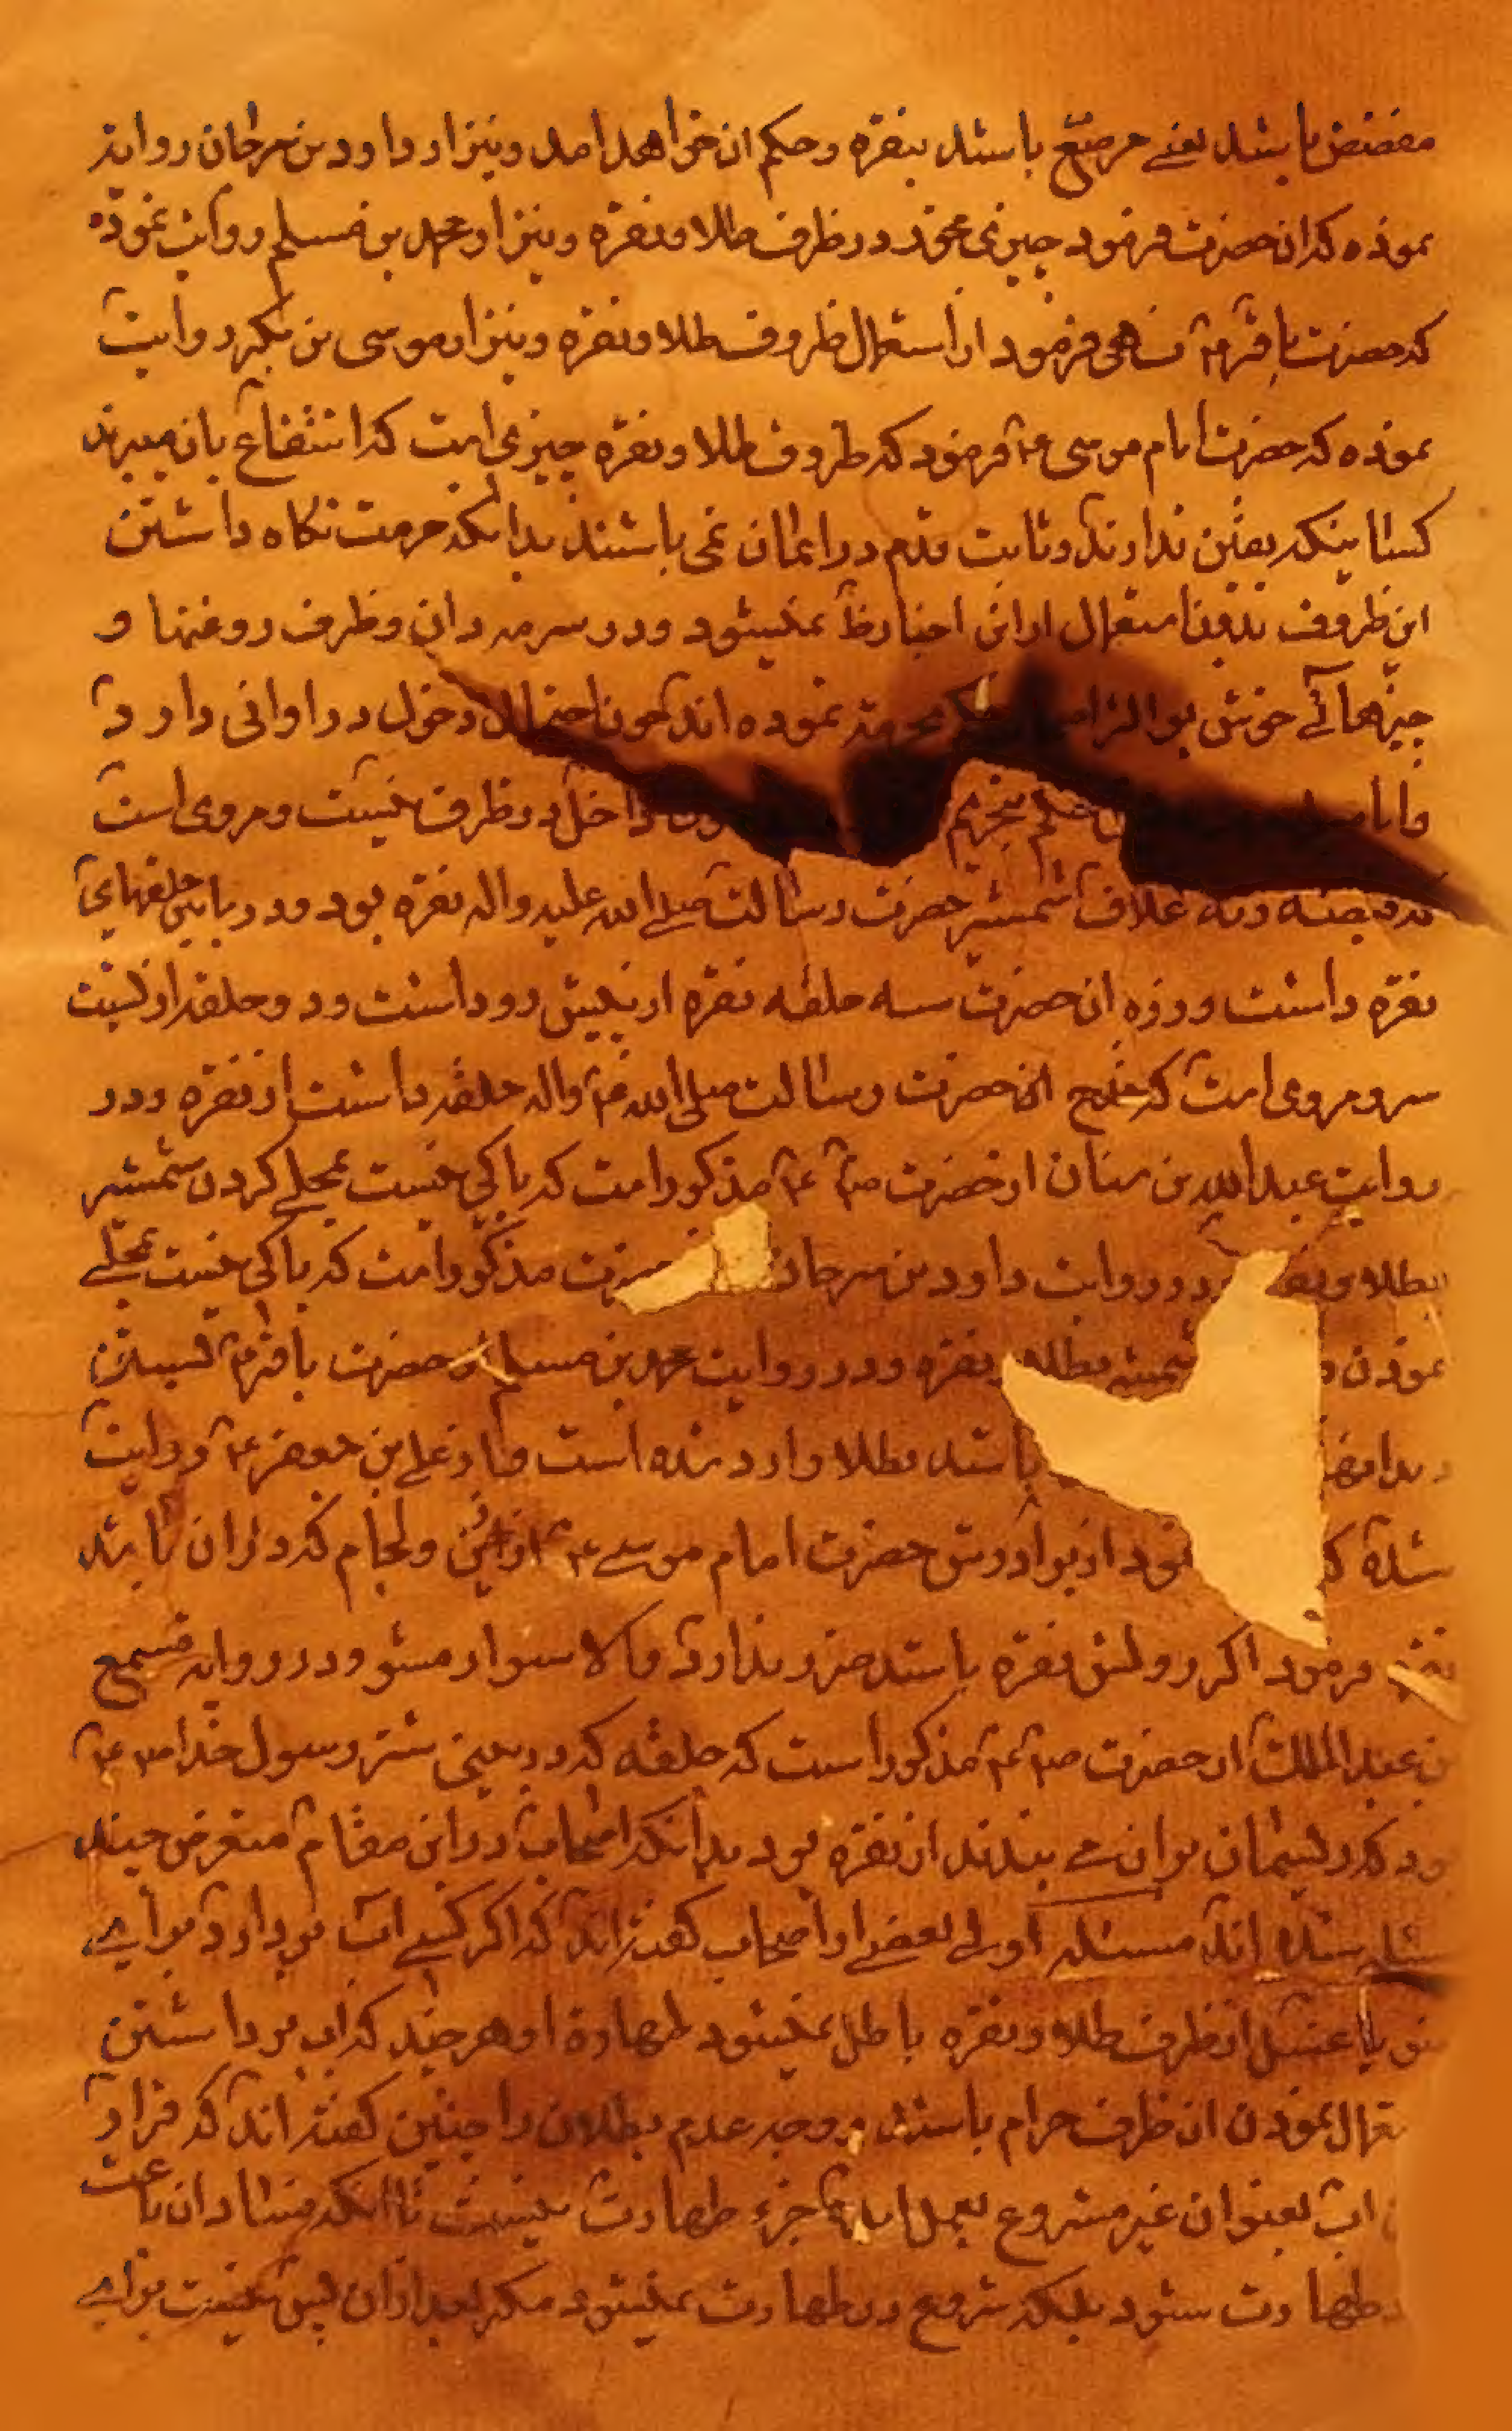 مفضض باشد یعنے مرصّع باشد بنقره و حکم ان خواهد امد و نیز از داود بن سرحان روایة
نموده که ان حضرت فرمود چیزی مخور در ظرف طلا و نقره و نیز از محمد بن مسلم روایت نموده
که حضرت باقر ۴ نهی فرمود از استعمال ظروف طلا و نقره و نیز از موسی بن بکر روایت
نموده که حضرت امام موسی ۴ فرمود که ظروف طلا و نقره چیزی است که انتفاع بان میبرند
کسانینکه یقین ندارند و ثابت قدم در ایمان نمی باشند بدانکه حرمت نگاه داشتن
این ظروف بدون استعمال از این اخبار ظ نمیشود و در سرمه دان و ظرف روغنها و
چیزهائے خوش بو اکثر حکم بحرمة نموده اند چون احتمال دخول در اوانی دارد
و اما حکم بتحریم داخل در ظرف نیست و مروی است
که قبضه و ته غلاف شمشیر حضرت رسالت صلے الله علیه واله نقره بود و در مابین حلقهای
نقره داشت و زره ان حضرت سه حلقه نقره از پیش رو داشت و دو حلقه از پشت
سر و مروی است که انحضرت رسالت صلی الله ۴ واله حلقه داشت از نقره و در
روایت عبد الله بن سنان از حضرت ص ۴ مذکور است که باکی نیست بمحلے کردن شمشیر
بطلا و نقره و در روایت داود بن سرحان حضرت مذکور است که باکی نیست بمحلے
نمودن شمشیر بطلا و نقره و در روایت محمد بن مسلم از حضرت باقر ۴
باشد بطلا وارد شده است و از علے بن جعفر ۴ روایت
شده که نمود از برادرش حضرت امام موسے ۴ از زین و لجام که در ان باشد
نقره فرمود اگر روکش نقره باشد ضرر ندارد و الا سوار مشو و در روایة مسمع
بن عبد الملک از حضرت ص ۴ مذکور است که حلقه که در بینی شتر رسول خدا ص ۴
بود که ریسمان بر ان مے بندند از نقره بود بدانکه اصحاب در این مقام متعرض چند
مسئله شده اند مسئله اولے بعضے از اصحاب گفته اند که اگر کسے اب بردارد براے
وضو یا غسل از ظرف طلا و نقره باطل نمیشود طهارة او هر چند که اب برداشتن
نمودن ان ظرف حرام باشد و وجه عدم بطلان را چنین گفته اند که قرار
اب بعنوان غیر مشروع بعمل امده جزء طهارت نیست تا انکه فساد ان باعث
طهارت شود بلکه شروع در طهارت نمیشود مگر بعد از ان پس نیست براے